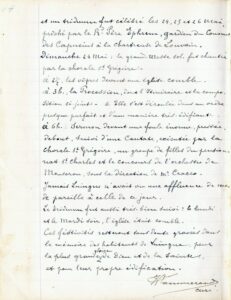 et un triduum fut célébré les 24, 25 et 26 Mai,
prêché par le R. Père Ephrem, gardien du Couvent
des Capucins à la chartreuse de Louvain.
Dimanche 24 Mai, la grand'Messe sol. fut chantée
par la chorale St Grégoire.
A 2 h. les vêpres devant une église comble.
A 3 h. la Procession, dont l'itinéraire et la compo-
sition ci joint. Elle s'est déroulée dans un ordre
presque parfait et d'une manière très édifiante.
A 6 h. Sermon devant une foule énorme
debout, suivi d'une Cantate, exécutée par la
Chorale St Grégoire, un groupe de filles du pension-
nat St Charles et le concours de l'orchestre de
Mouscron, sous la direction de Mr
Jamais Luingne n'avait vu une affluence de monde
pareille à celle de ce jour.
Le triduum fut aussi très bien suivi : le lundi
et le Mardi soir, l'église était comble.
Ces festivités resteront sans doute gravées dans
la mémoire des habitants de Luingne, pour
la plus grande gloire de Dieu et de la Sainte,
et pour leur propre édification.
curé